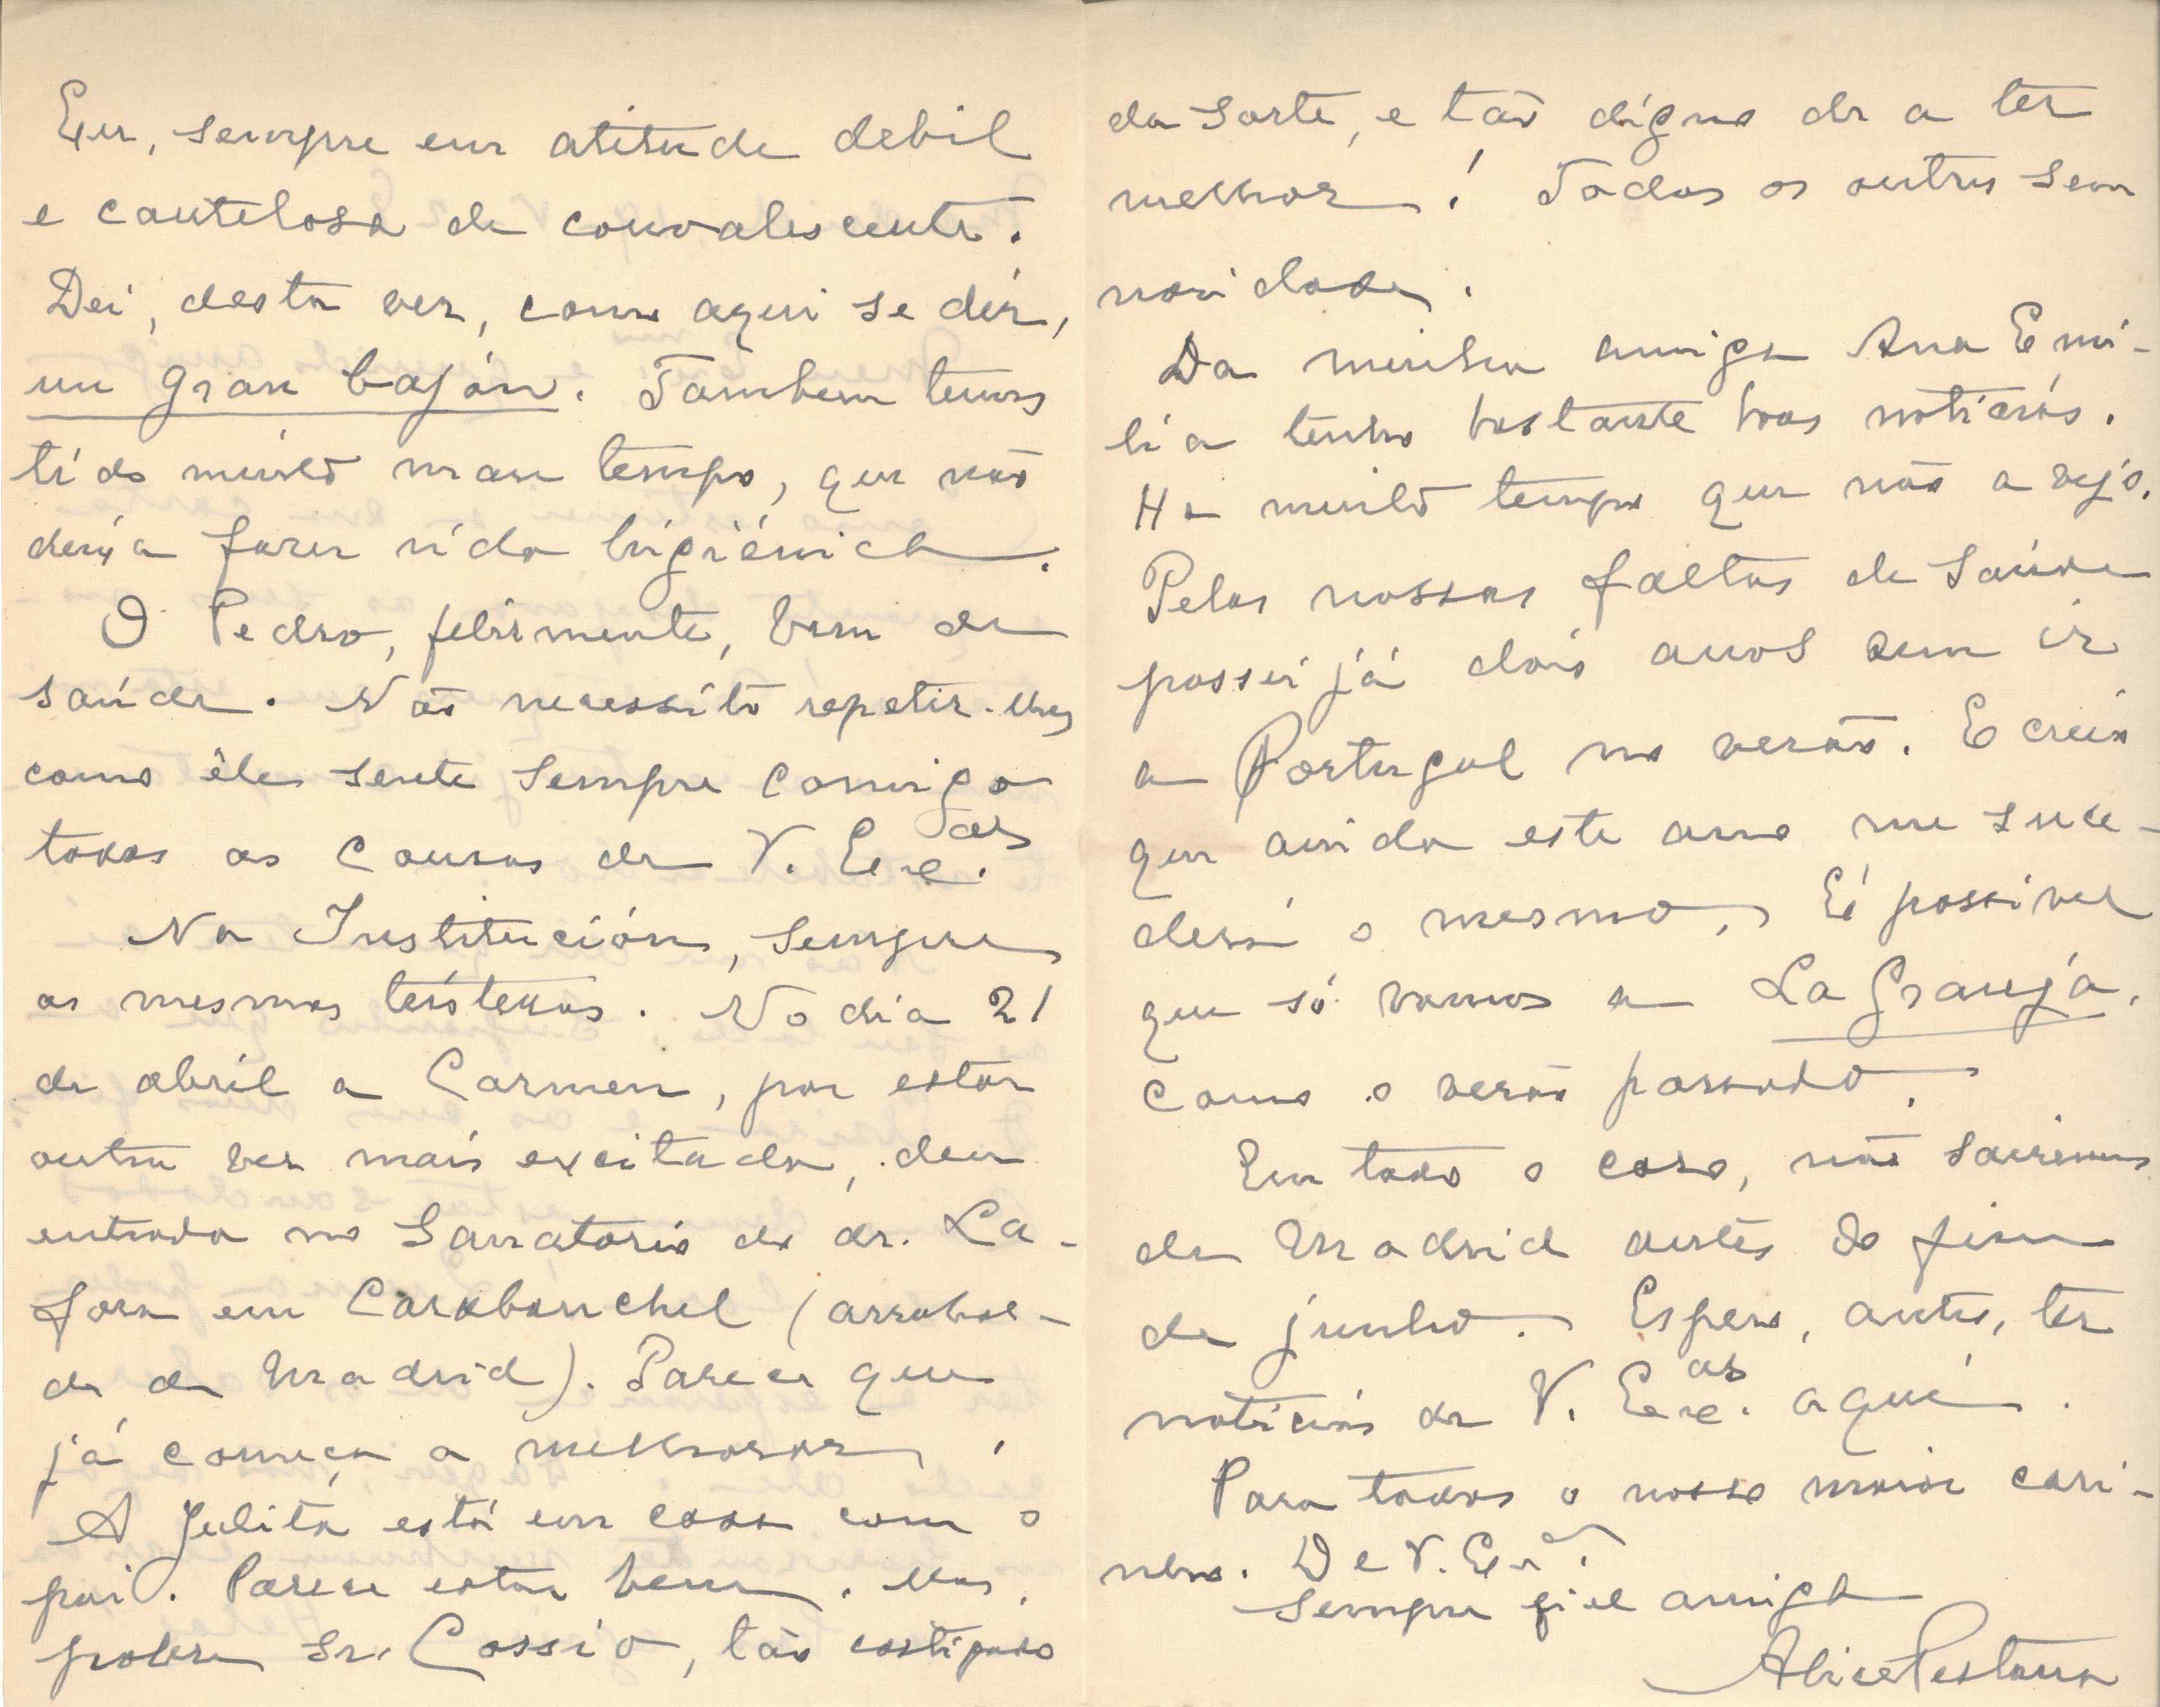 Eu, sempre em atitude debil
e cautelosa de convalescente.
Dei, desta vez, como aqui se diz,
un gran bajón. Tambem temos
tido muito mau tempo, que não
deixa fazer vida higiénica.
O Pedro, felizmente, bem de
saúde. Não necessito repetir-lhes
como êle sente sempre comigo
todas as cousas de V. Exc.as
Na Institución, sempre
as mesmas tristezas. No dia 21
de abril a Carmen, por estar
outra vez mais excitada, deu
entrada no Sanatorio do dr. La-
fora em Carabanchel (arrabal-
de de Madrid). Parece que
já começa a melhorar.
A Julita está em casa com o
pai. Parece estar bem. Mas,
pobre Sr. Cossío, tão castigado
da sorte, e tão digno de a ter
melhor! Todos os outros sem
novidade.
Da minha amiga Ana Emi-
lia tenho bastante boas noticias.
Ha muito tempo que não a vejo.
Pelas nossas faltas de saúde
passei já dois anos sem ir
a Portugal no verão. E creio
que ainda este ano me suce-
derá o mesmo. É possivel
que só vamos a La Granja,
como o verão passado.
Em todo o caso, não sairemos
de Madrid antes do fim
de junho. Espero, antes, ter
noticias de V. Exc.as aqui.
Para todos o nosso maior cari-
nho. De V. Ex.a
Sempre fiel amiga
Alice Pestana